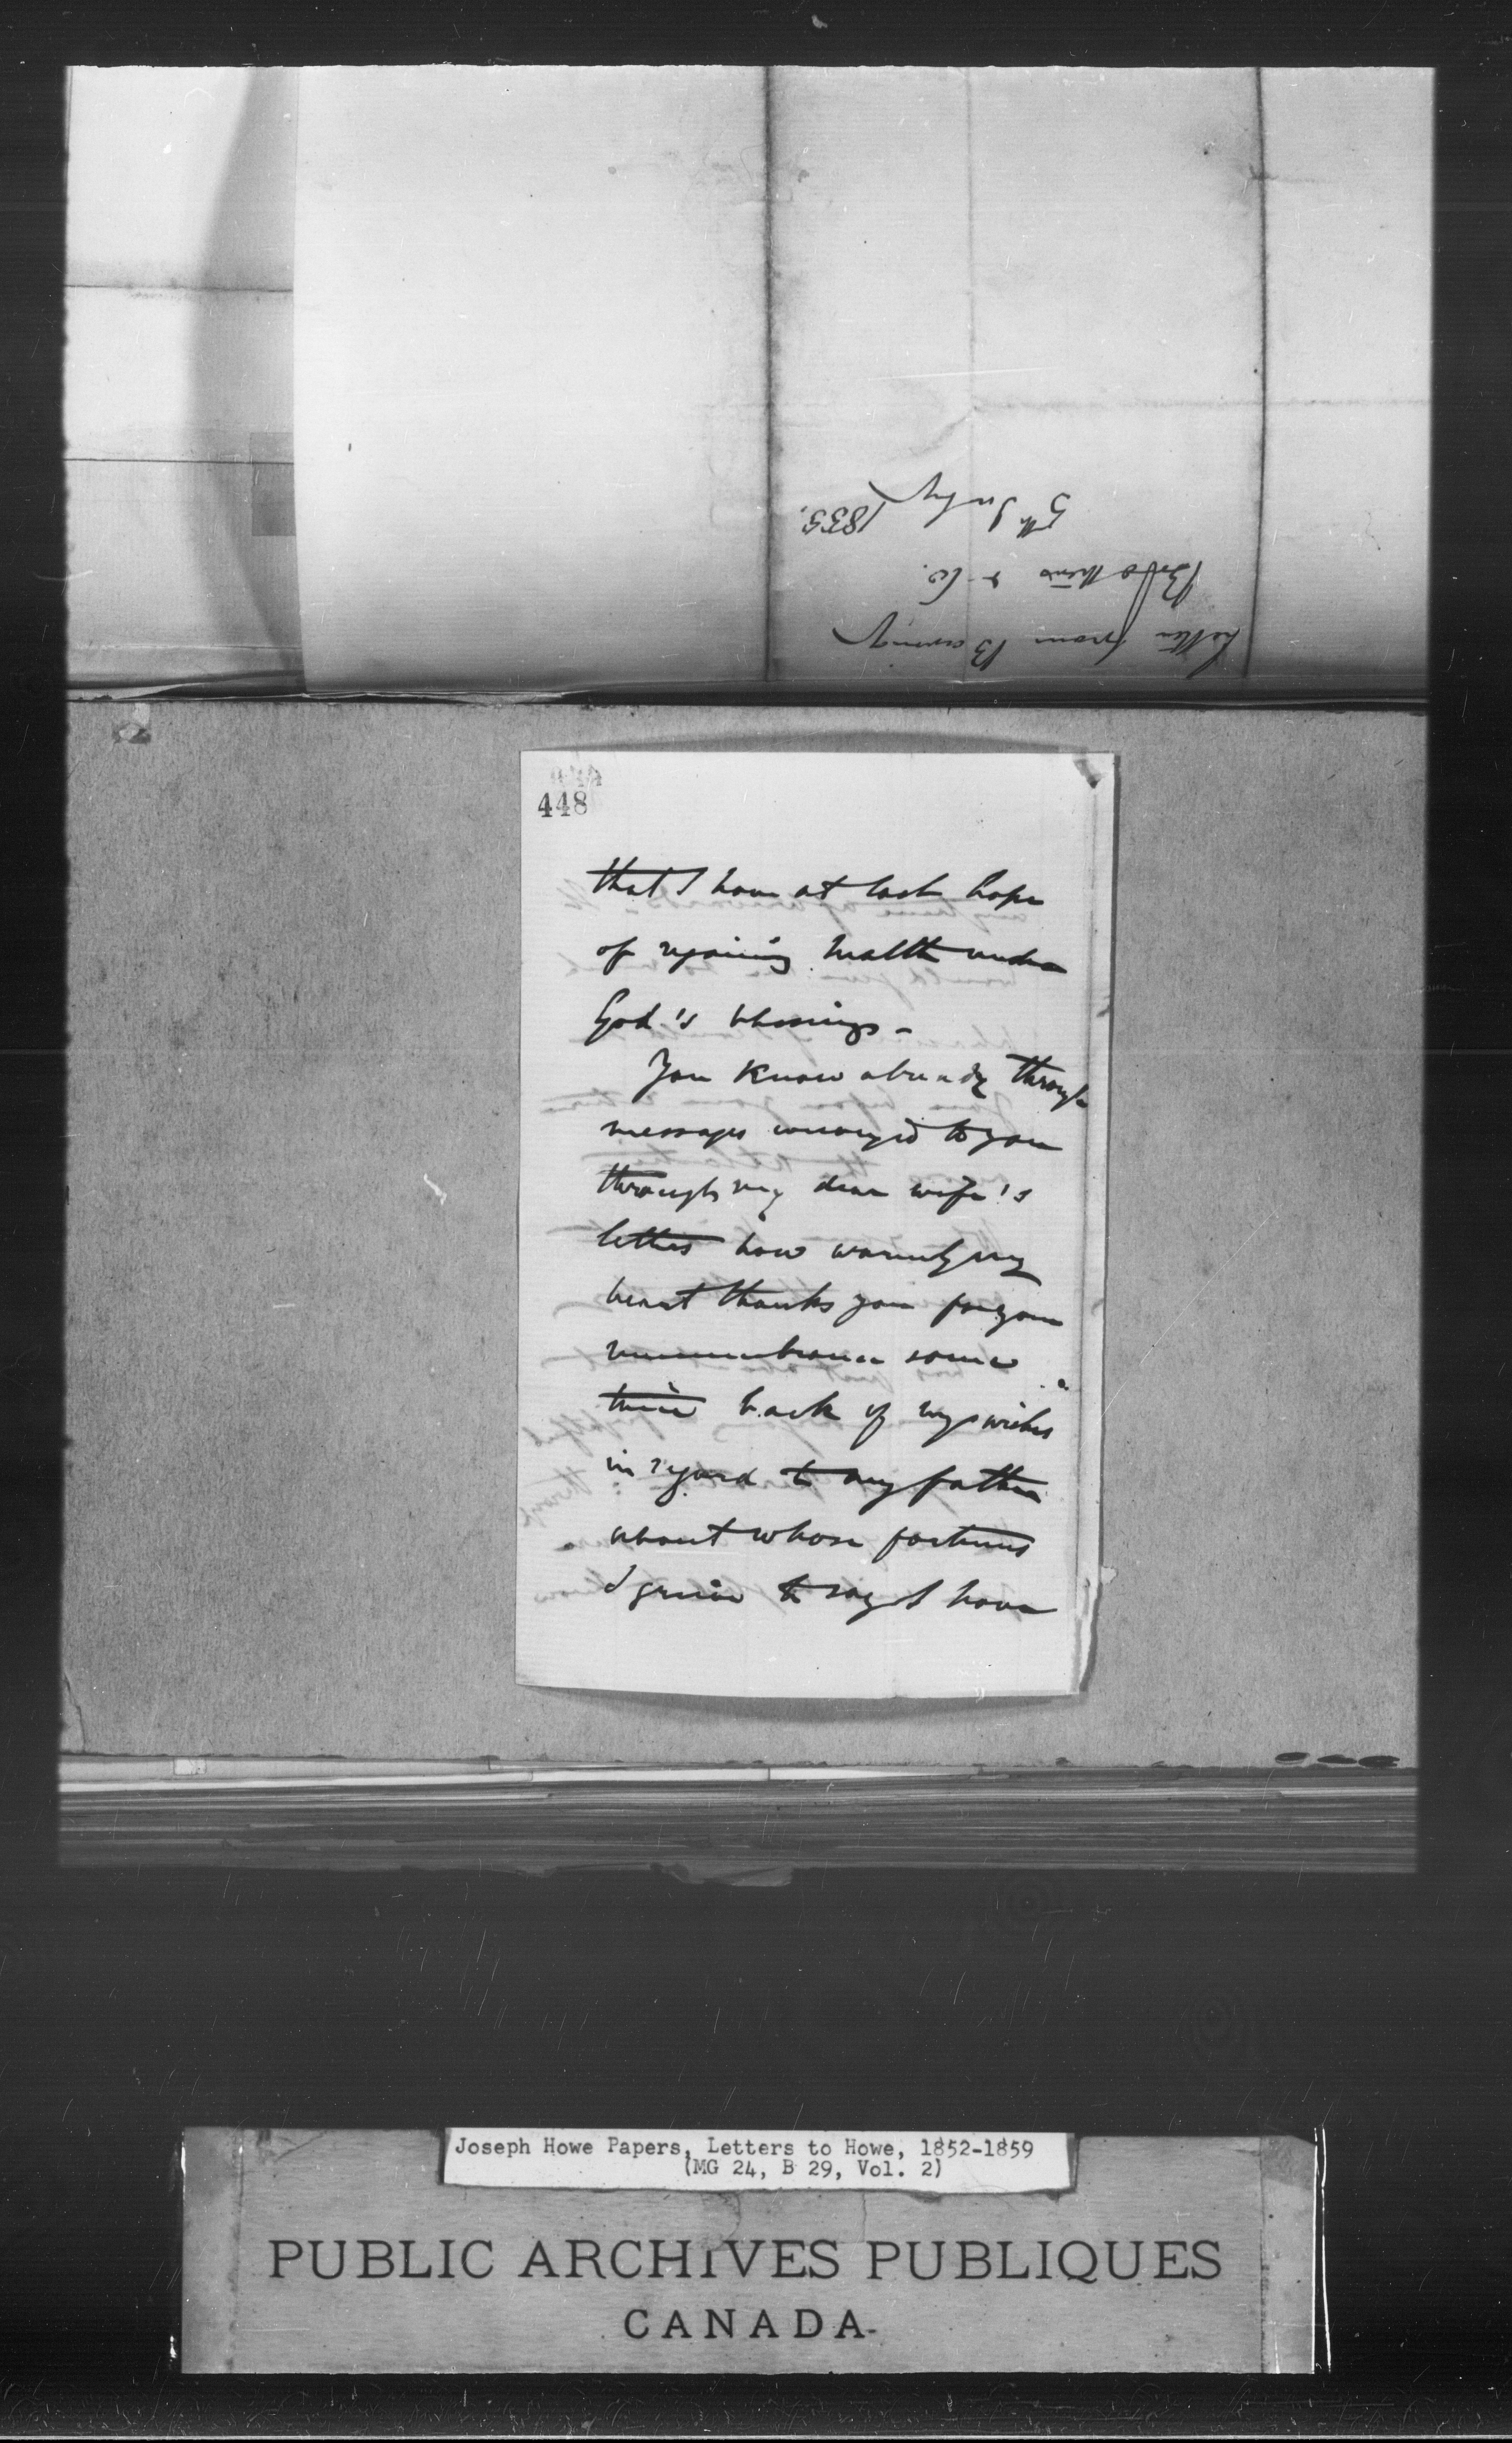 Letter from Baring
Brothers & Co.
5th July 1855.
444
448
that I have at last hope
of regaining health under
God's blessings -
You know already through
messages conveyed to you
through my dear wife's
letters how warmly my
heart thanks you for your
remembrance some
time back of my wishes
in regard to my father
about whose fortunes
I grieve to say I have
Joseph Howe Papers, Letters to Howe, 1852-1859
(MG 24, B 29, Vol. 2)
PUBLIC ARCHIVES PUBLIQUES
CANADA